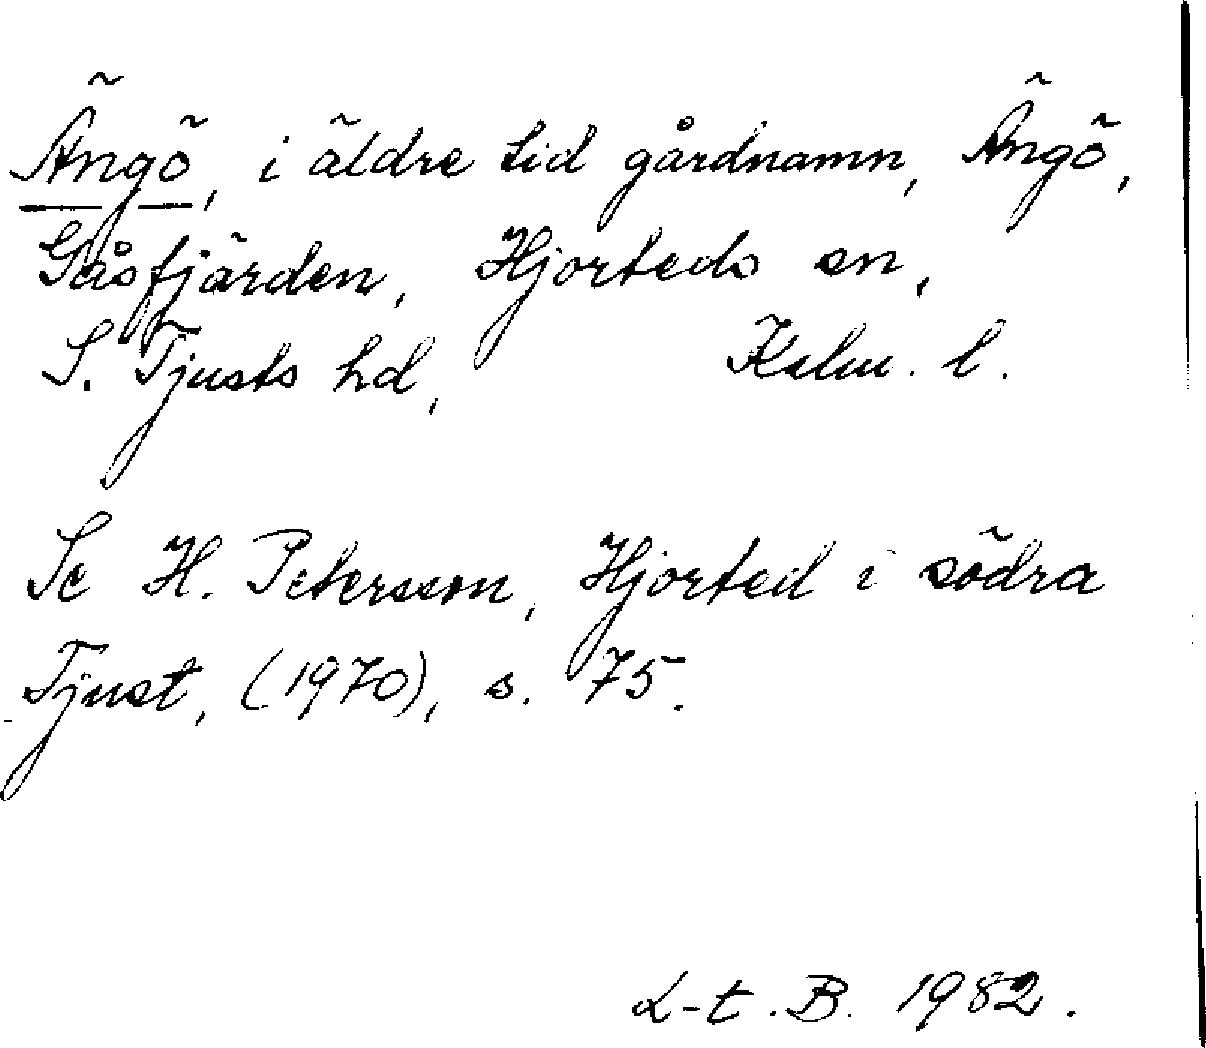 Ängö, i äldre tid gårdnamn, Ängö,
Gåsfjärden, Hjorteds sn,
S. Tjusts hd, Kalm. l.
Se H. Petersson, Hjorted i södra
Tjust, (1970), s. 75.
L-t. B. 1982.